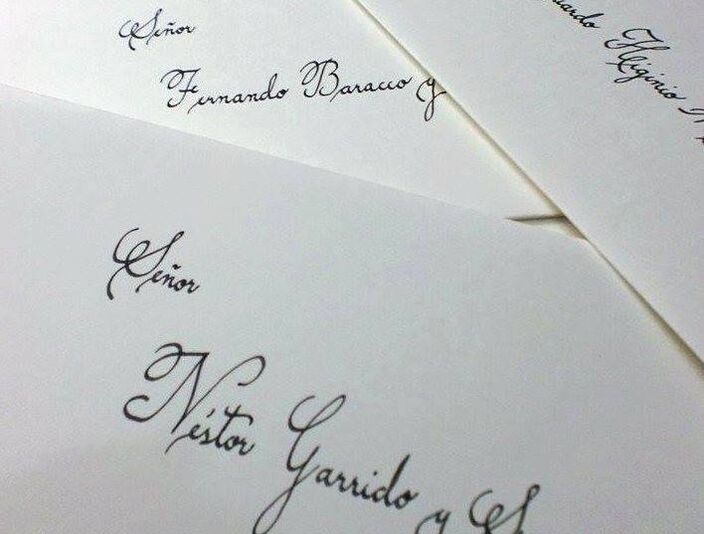 Señor
Fernando Baracco y
Higinio
Señor
Néstor Garrido y S